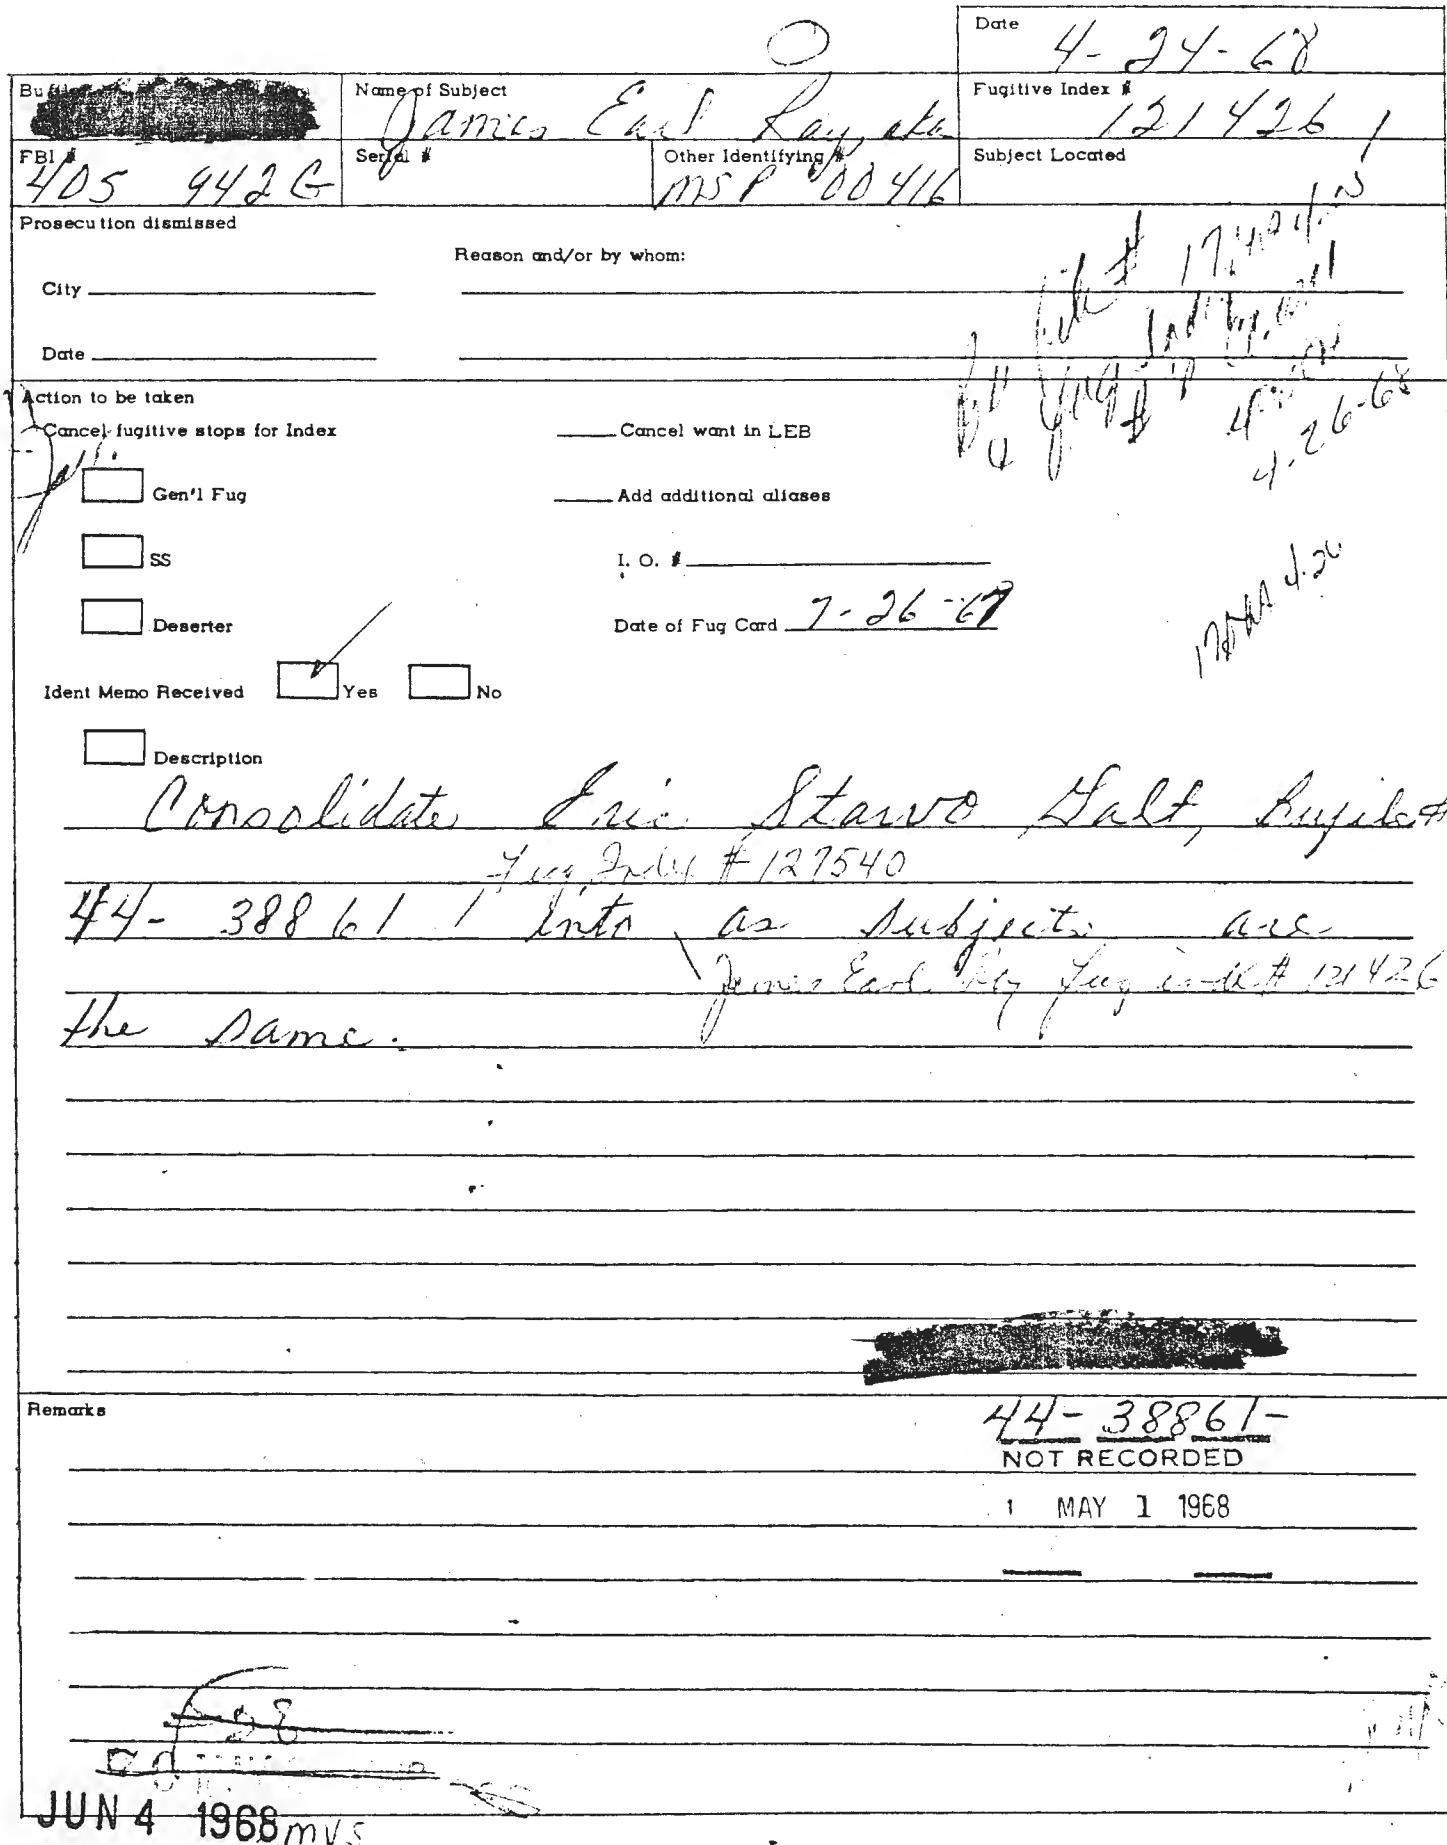 Date
4-24-68
Name of Subject
James Earl Ray, aka
Fugitive Index #
121426
FBI #
405 942 G
Serial #
Other Identifying #
MSP 00416
Subject Located
Prosecution dismissed
Reason and/or by whom:
City
Date
4-26-68
Action to be taken
Cancel fugitive stops for Index
Cancel want in LEB
Gen'l Fug
Add additional aliases
SS
I. O. #
Deserter
Date of Fug Card 7-26-67
Ident Memo Received Yes No
Description
Consolidate Eric Starvo Galt, Bufile #
Fug Index # 127540
44-38861 into as subjects are
James Earl Ray Fug index # 121426
the same.
Remarks
44-38861-
NOT RECORDED
1 MAY 1 1968
JUN 4 1968 mvs